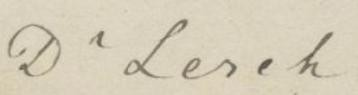 Dr Lerch